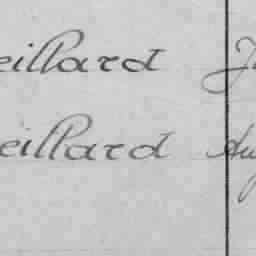 eillard J
eillard Au